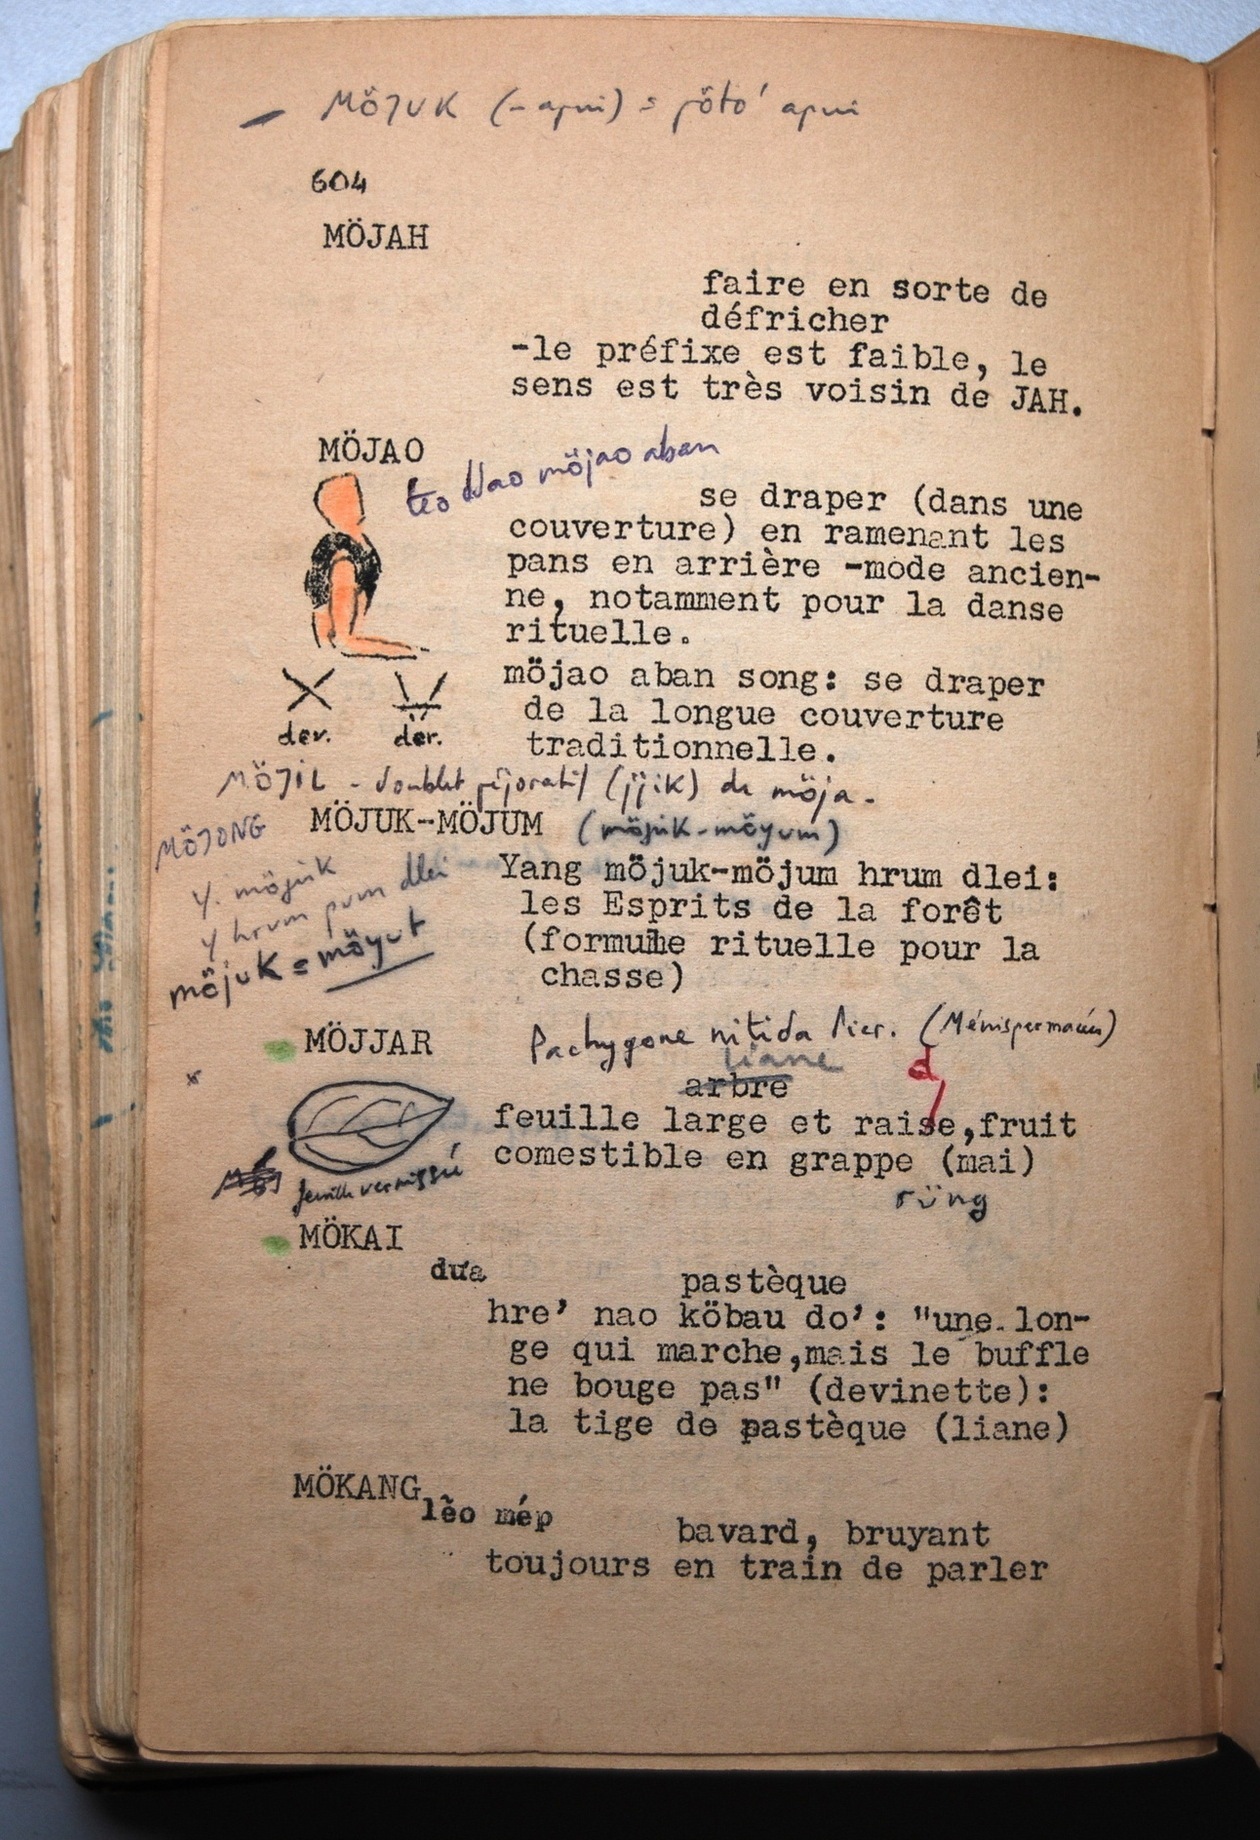 — MÖJUK (- apui) = pöto' apui
604
MÖJAH
faire en sorte de
défricher
-le préfixe est faible, le
sens est très voisin de JAH.
MÖJAO
teo đao möjao aban
se draper (dans une
couverture) en ramenant les
pans en arrière -mode ancien-
ne, notamment pour la danse
rituelle.
möjao aban song: se draper
de la longue couverture
traditionnelle.
der. der.
MÖJIL - doublet péjoratif (jjik) de möja.
MÖJONG
MÖJUK-MÖJUM (möjuk-möyum)
Yang möjuk-möjum hrum dlei:
les Esprits de la forêt
(formule rituelle pour la
chasse)
y. möjuk
y hrum pum dlei
möjuk = möyut
MÖJJAR
Pachygone nitida Pier. (Ménispermacées)
liane
arbre
d
feuille large et raise,fruit
comestible en grappe (mai)
feuille vernissée
rüng
MÖKAI
dưa
pastèque
hre' nao köbau do': "une lon-
ge qui marche,mais le buffle
ne bouge pas" (devinette):
la tige de pastèque (liane)
MÖKANG
lẽo mép
bavard, bruyant
toujours en train de parler